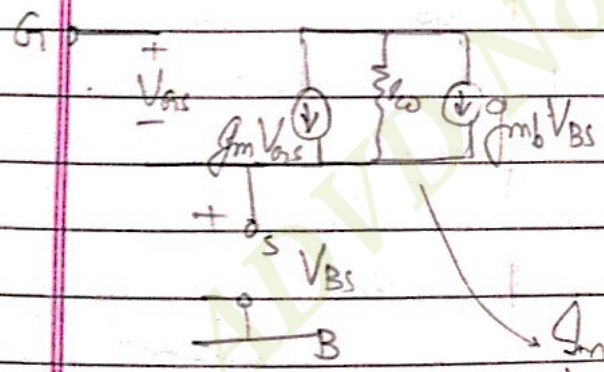 G
+
V_GS
-
g_m V_GS
r_o
g_mb V_BS
+
S
V_BS
B
g_m
ADVD No